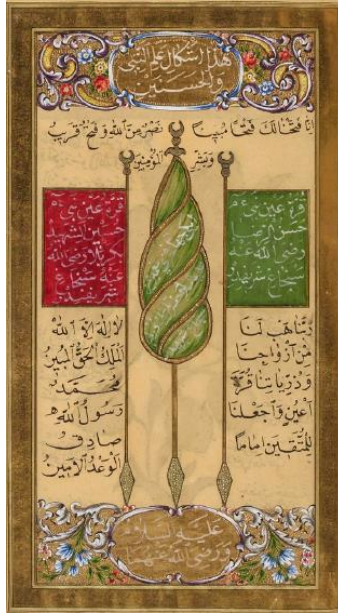 هذا اشكال علم النبي
والحسنين
انا فتحنا لك فتحا مبينا نصر من الله وفتح قريب
وبشر المؤمنين
قرة عين نبي
حسن الرضا
رضي الله عنه
سنجاغ شريفيدر
قرة عين نبي
حسين الشهيد
بكربلا رضي الله
عنه سنجاغ
شريفيدر
رَبَّنَا هَبْ لَنَا
مِنْ أَزْوَاجِنَا
وَذُرِّيَاتِنَا قُرَّةَ
أَعْيُنٍ وَٱجْعَلْنَا
لِلْمُتَّقِينَ إِمَامًا
لَا إِلَهَ إِلَّا ٱللَّه
ٱلْمَلِكُ ٱلْحَقُّ ٱلْمُبِينُ
مُحَمَّدٌ
رَسُولُ ٱللَّهِ
صَادِقُ
ٱلْوَعْدِ ٱلْأَمِينُ
عليه السلام
ورضي الله عنهما